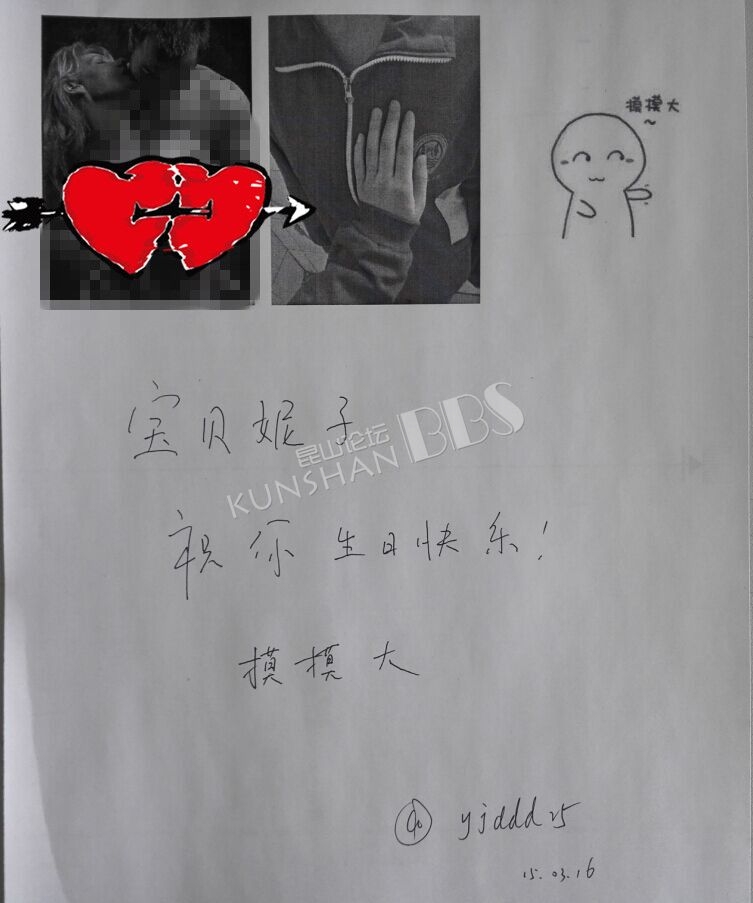 摸摸大
~
宝贝妮子
昆山论坛
KUNSHAN BBS
祝你 生日快乐!
摸摸大
yjddd25
15.03.16